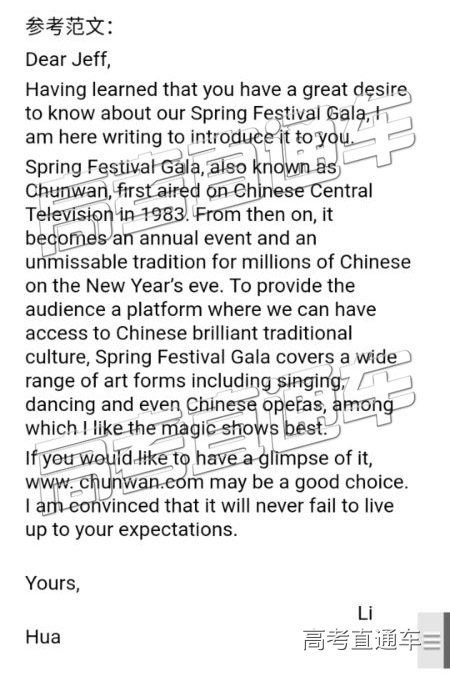 参考范文：
Dear Jeff,
Having learned that you have a great desire
to know about our Spring Festival Gala, I
am here writing to introduce it to you.
Spring Festival Gala, also known as
Chunwan, first aired on Chinese Central
Television in 1983. From then on, it
becomes an annual event and an
unmissable tradition for millions of Chinese
on the New Year’s eve. To provide the
audience a platform where we can have
access to Chinese brilliant traditional
culture, Spring Festival Gala covers a wide
range of art forms including singing,
dancing and even Chinese operas, among
which I like the magic shows best.
If you would like to have a glimpse of it,
www. chunwan.com may be a good choice.
I am convinced that it will never fail to live
up to your expectations.
Yours,
Li
Hua
高考直通车
高考直通车
高考直通车